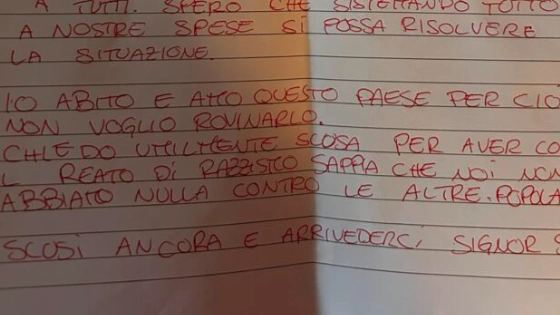 A TUTTI. SPERO CHE SISTEMANDO TUTTO
A NOSTRE SPESE SI POSSA RISOLVERE
LA SITUAZIONE.
IO ABITO E AMO QUESTO PAESE PER CIÒ
NON VOGLIO ROVINARLO.
CHIEDO UMILMENTE SCUSA PER AVER CO
IL REATO DI RAZZISMO SAPPIA CHE NOI NON
ABBIAMO NULLA CONTRO LE ALTRE POPOLA
SCUSI ANCORA E ARRIVEDERCI SIGNOR S